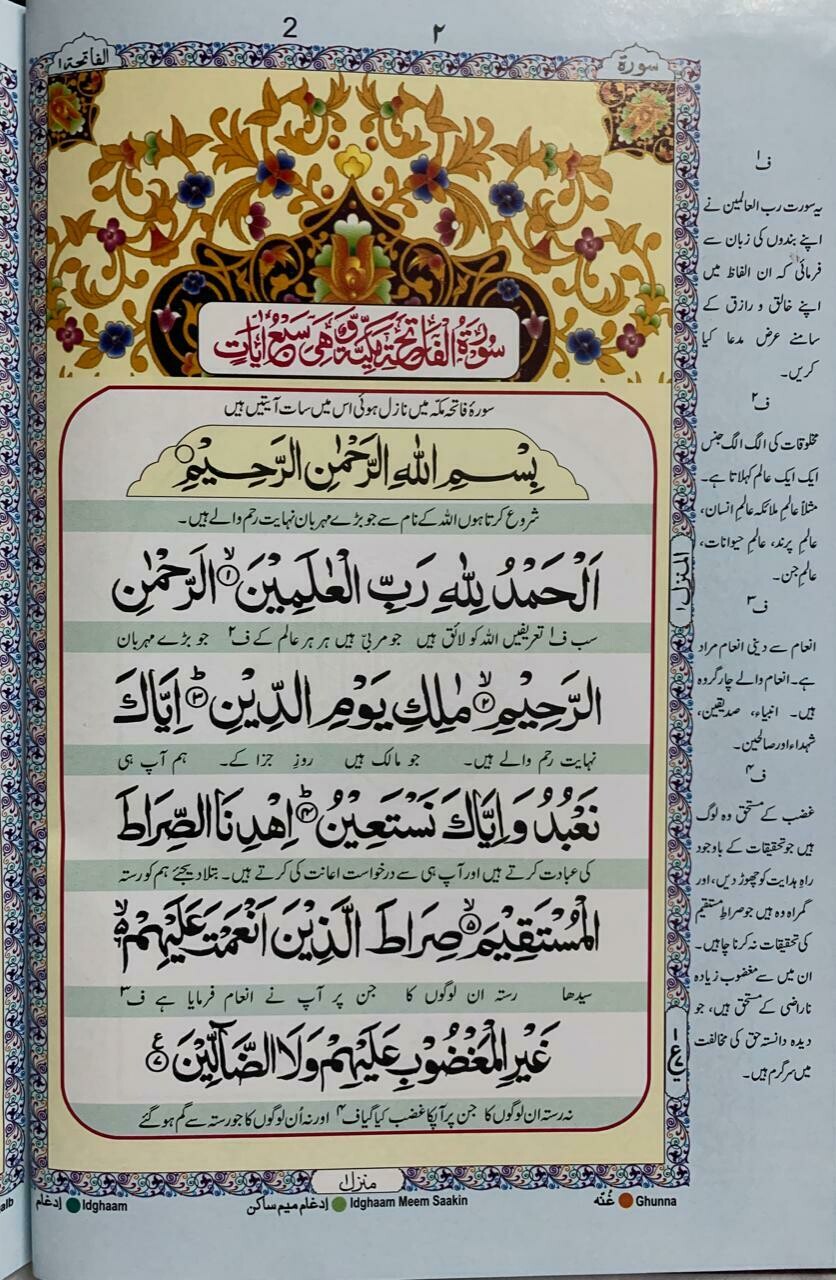 2
٢
الفاتحة ١
سورة
سُوْرَةُ الْفَاتِحَةِ مَكِّيَّةٌ وَّهِيَ سَبْعُ اٰيَاتٍ
سورۂ فاتحہ مکّہ میں نازل ہوئی اس میں سات آیتیں ہیں
بِسْمِ اللّٰهِ الرَّحْمٰنِ الرَّحِيْمِ
شروع کرتا ہوں اللہ کے نام سے جو بڑے مہربان نہایت رحم والے ہیں۔
اَلْحَمْدُ لِلّٰهِ رَبِّ الْعٰلَمِيْنَ ۙ‏﴿۱﴾ الرَّحْمٰنِ
سب ف۱ تعریفیں اللہ کو لائق ہیں جو مربی ہیں ہر ہر عالم کے ف۲ جو بڑے مہربان
الرَّحِيْمِ ۙ‏﴿۲﴾ مٰلِكِ يَوْمِ الدِّيْنِ ؕ‏﴿۳﴾ اِيَّاكَ
نہایت رحم والے ہیں۔ جو مالک ہیں روزِ جزا کے۔ ہم آپ ہی
نَعْبُدُ وَاِيَّاكَ نَسْتَعِيْنُ ؕ‏﴿۴﴾ اِهْدِنَا الصِّرَاطَ
کی عبادت کرتے ہیں اور آپ ہی سے درخواست اعانت کی کرتے ہیں۔ بتلا دیجئے ہم کو رستہ
الْمُسْتَقِيْمَ ۙ‏﴿۵﴾ صِرَاطَ الَّذِيْنَ اَنْعَمْتَ عَلَيْهِمْ ۙ‏﴿۶﴾
سیدھا رستہ ان لوگوں کا جن پر آپ نے انعام فرمایا ہے ف۳
غَيْرِ الْمَغْضُوْبِ عَلَيْهِمْ وَلَا الضَّآلِّيْنَ ﴿۷﴾ ع
نہ رستہ ان لوگوں کا جن پر آپکا غضب کیا گیا ف۴ اور نہ اُن لوگوں کا جو رستہ سے گم ہو گئے
منزل ۱
ف۱
یہ سورت رب العالمین نے
اپنے بندوں کی زبان سے
فرمائی کہ ان الفاظ میں
اپنے خالق و رازق کے
سامنے عرض مدعا کیا
کریں۔
ف۲
مخلوقات کی الگ الگ جنس
ایک ایک عالم کہلاتا ہے۔
مثلاً عالمِ ملائکہ عالمِ انسان،
عالمِ پرند، عالمِ حیوانات،
عالمِ جن۔
ف۳
انعام سے دینی انعام مراد
ہے۔ انعام والے چار گروہ
ہیں۔ انبیاء، صدیقین،
شہداء اور صالحین۔
ف۴
غضب کے مستحق وہ لوگ
ہیں جو تحقیقات کے باوجود
راہِ ہدایت کو چھوڑ دیں، اور
گمراہ وہ ہیں جو صراطِ مستقیم
کی تحقیقات نہ کرنا چاہیں۔
ان میں سے مغضوب زیادہ
ناراضی کے مستحق ہیں، جو
دیدہ دانستہ حق کی مخالفت
میں سرگرم ہیں۔
المنزل ۱
۱
ع
alb
ادغام Idghaam
ادغام میم ساکن Idghaam Meem Saakin
غُنّہ Ghunna